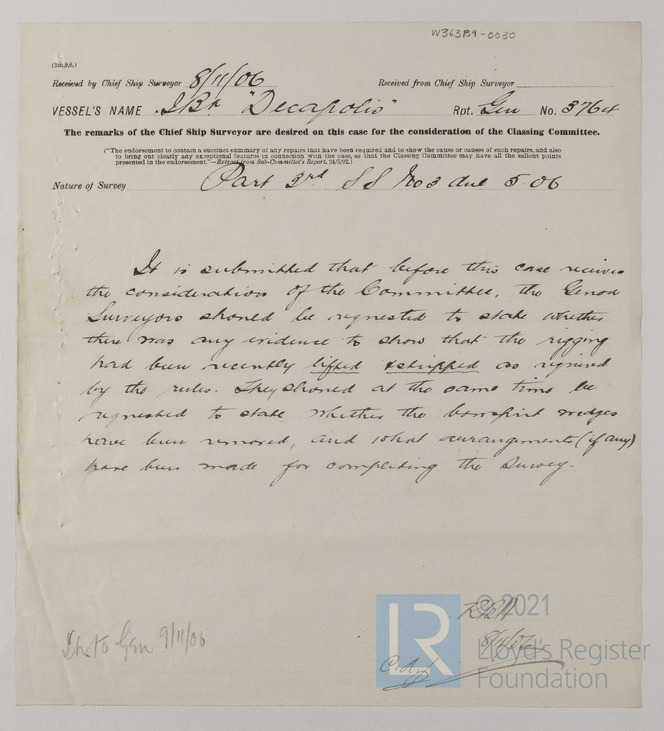 W363B9-0030
(3m,9,6.)
Received by Chief Ship Surveyor 8/11/06 Received from Chief Ship Surveyor
VESSEL'S NAME I Bk "Decapolis" Rpt. Gen No. 3764
The remarks of the Chief Ship Surveyor are desired on this case for the consideration of the Classing Committee.
("The endorsement to contain a succinct summary of any repairs that have been required and to show the cause or causes of such repairs, and also
to bring out clearly any exceptional features in connection with the case, so that the Classing Committee may have all the salient points
presented in the endorsement."—Extract from Sub-Committee's Report, 24/5/92.)
Nature of Survey Part 3rd SS No 3 due 5.06
It is submitted that before this case receives
the consideration of the Committee, the Genoa
Surveyors should be requested to state whether
there was any evidence to show that the rigging
had been recently lifted & stripped as required
by the rules. They should at the same time be
requested to state whether the bowsprit wedges
have been removed, and what arrangements (if any)
have been made for completing the survey.
8/11/06
to Gen 9/11/06
LR
© 2021
Lloyd's Register
Foundation